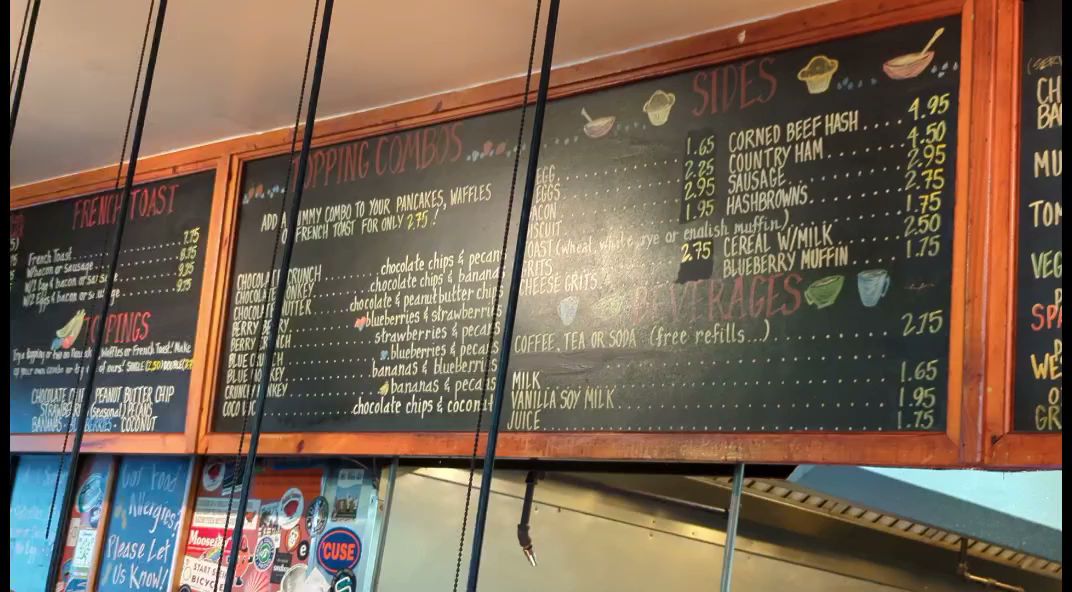 FRENCH TOAST
French Toast 7.75
W/bacon or sausage 8.75
W/1 Egg & bacon or sausage 9.25
W/2 Eggs & bacon or sausage 9.75
TOPPINGS
CHOCOLATE CHIP PEANUT BUTTER CHIP
STRAWBERRY (seasonal) PECANS
BANANAS BLUEBERRIES COCONUT
TOPPING COMBOS
ADD A YUMMY COMBO TO YOUR PANCAKES, WAFFLES
OR FRENCH TOAST FOR ONLY 2.75!
CHOCOLATE CRUNCH chocolate chips & pecans
CHOCOLATE MONKEY chocolate chips & bananas
CHOCOLATE NUTTER chocolate & peanut butter chips
BERRY BERRY blueberries & strawberries
BERRY strawberries & pecans
BLUE CRUNCH blueberries & pecans
BLUE MONKEY bananas & blueberries
CRUNCHY MONKEY bananas & pecans
COCO chocolate chips & coconut
SIDES
EGG 1.65
EGGS 2.25
BACON 2.95
BISCUIT 1.95
TOAST (wheat, white, rye or english muffin)
GRITS
CHEESE GRITS 2.75
CORNED BEEF HASH 4.95
COUNTRY HAM 4.50
SAUSAGE 2.95
HASHBROWNS 2.75
1.75
CEREAL W/MILK 2.50
BLUEBERRY MUFFIN 1.75
BEVERAGES
COFFEE, TEA OR SODA (free refills...) 2.75
MILK 1.65
VANILLA SOY MILK 1.95
JUICE 1.75
CH
BA
MU
TOM
VEG
SPA
WES
GR
Got Food
Allergies?
Please Let
Us Know!
START S
BICYCL
'CUSE